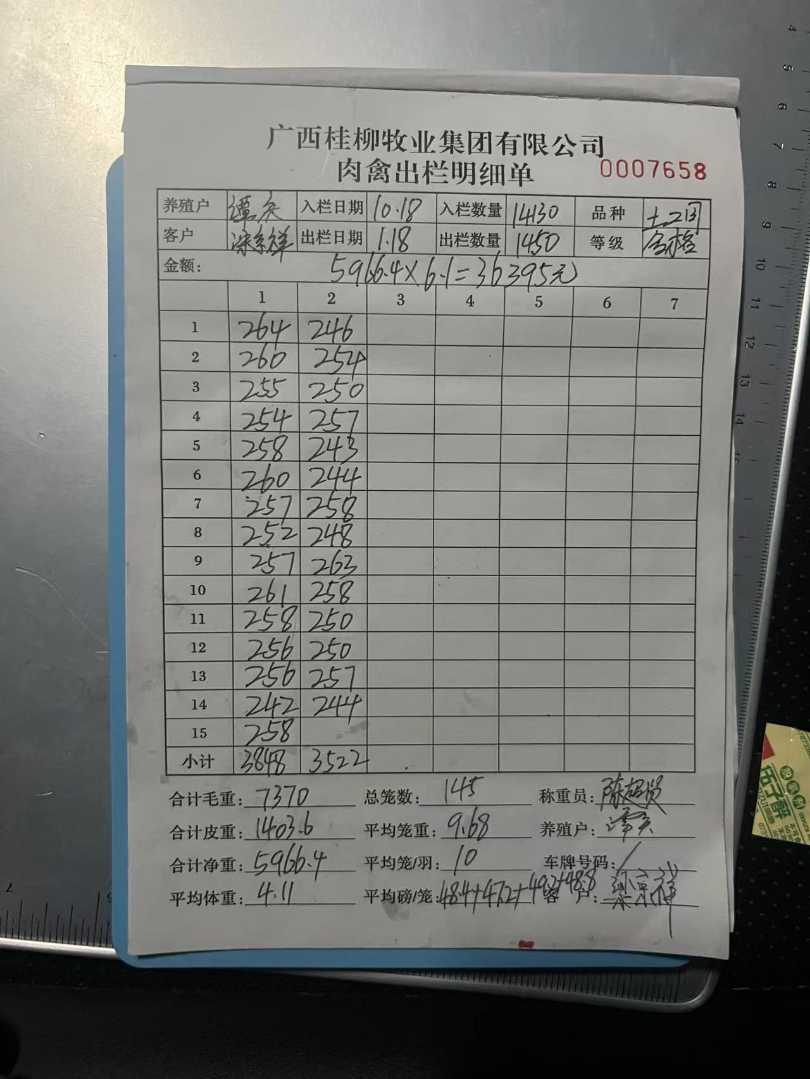 广西桂柳牧业集团有限公司
肉禽出栏明细单 0007658
养殖户 谭 入栏日期 10.18 入栏数量 14130 品种 土2
客户 梁京祥 出栏日期 1.18 出栏数量 1450 等级 合格
金额: 5966.4×6.1=36395元
1 2 3 4 5 6 7
1 264 246
2 260 254
3 255 250
4 254 257
5 258 243
6 260 244
7 257 258
8 252 248
9 257 263
10 261 258
11 258 250
12 256 250
13 256 257
14 242 244
15 258
小计 3848 3522
合计毛重: 7370 总笼数: 145 称重员: 陈
合计皮重: 1403.6 平均笼重: 9.68 养殖户: 谭
合计净重: 5966.4 平均笼/羽: 10 车牌号码: /
平均体重: 4.11 平均磅/笼: 48.4+47.2+49.2+48.8 客户: 梁京祥